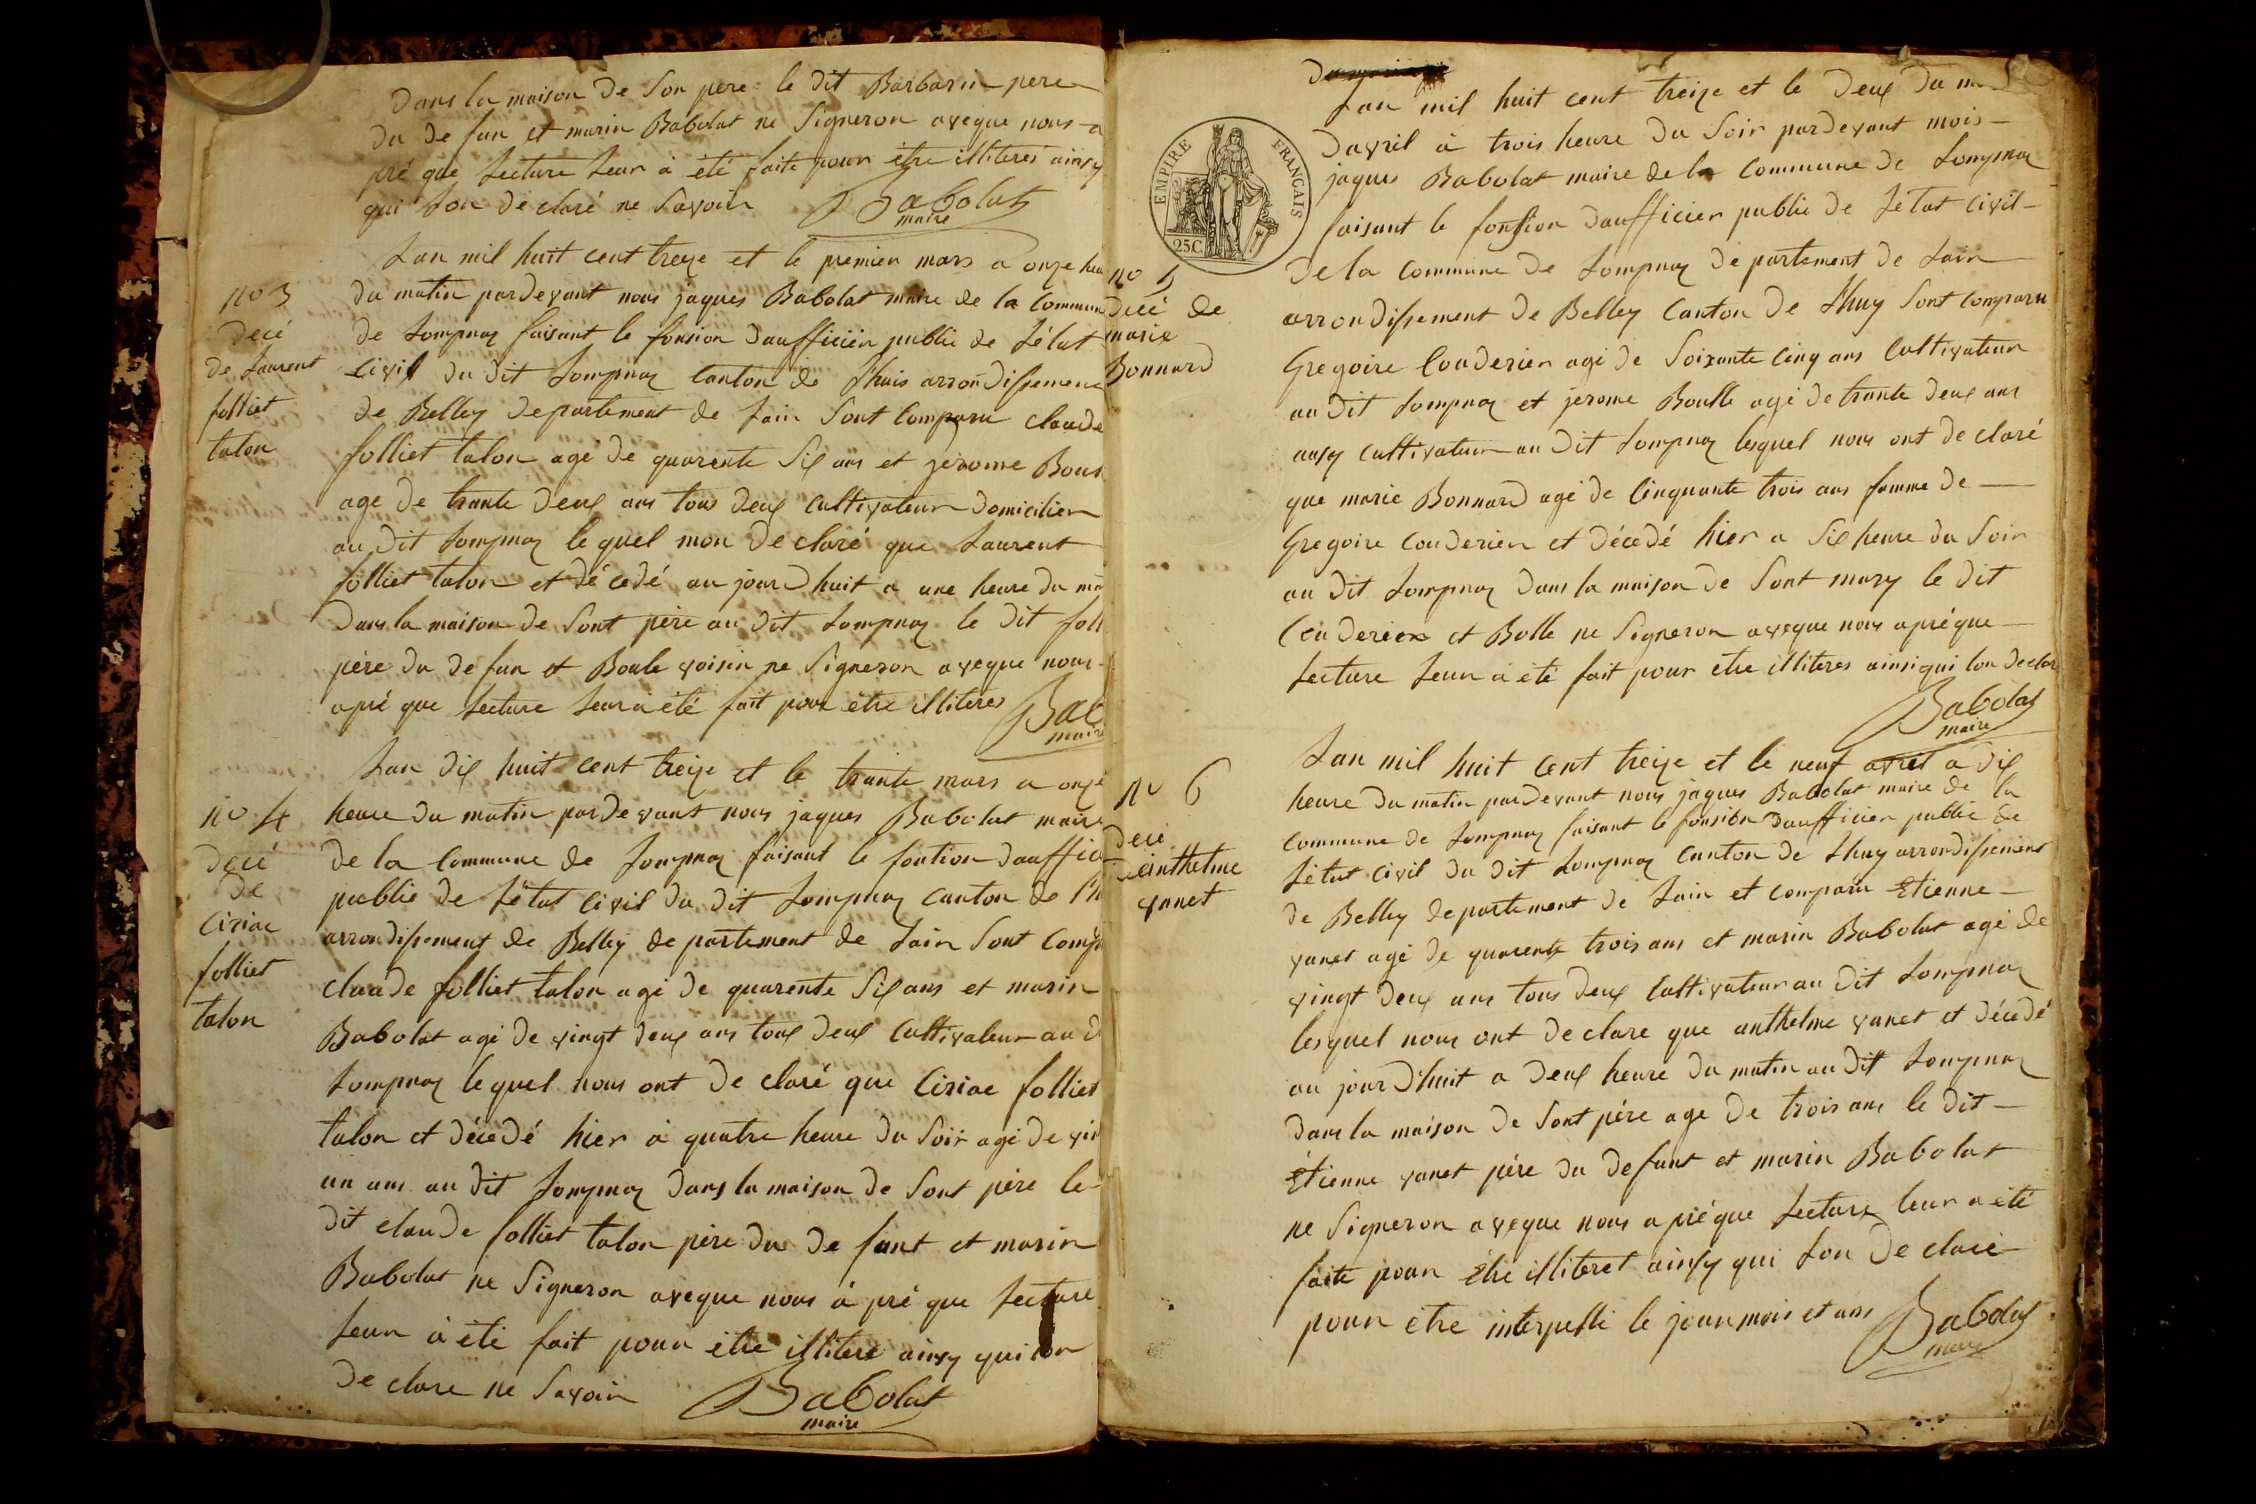 Dans la maison de Son pere le dit Barbarin pere
du defun et marin Babolat ne Signeron aveque nous a
pré que Lecture Leur à eté faite pour être illiteres ainsy
qui Lon declaré ne Savoir Babolat
maire
Lan mil huit cent treize et le premier mars a onze heu
no 3
du matin pardevant nous jaques Babolat maire de la Commun
decé
de Lompnaz faisant le fonsion daufficiér public de Létat
de Laurent
Civil du dit Lompnaz Canton de Lhuis arrondissemen
folliet
de Belley departement de Lain Sont Comparu claude
talon
folliet talon agé de quarente Six ans et jerome Bous
age de trante deux ans tous deux Cultivateur domicilier
au dit Lompnaz lequel mon declaré que Laurent
folliet talon et décedé au jourdhuit a une heure du ma
Dans la maison de Sont père au dit Lompnaz le dit foll
père du defun et Boule voisin ne Signeron aveque nous
apré que Lecture Leur a été fait pour être illiteres Bab
maire
Lan dix huit cent treize et le trante mars a onze
no 4
heure du matin pardevant nous jaques Babolat maire
decé
de la Commune de Lompnaz faisant le fontion daufficie
de
public de Létat Civil du dit Lompnaz canton de Lh
Ciriac
arrondissement de Belley departement de Lain Sont Compa
folliet
claude folliet talon agé de quarente Six ans et marin
talon
Babolat agé de vingt deux ans tous deux Cultivateur au d
Lompnaz lequel nous ont declaré que Ciriac folliet
talon et décedé hier à quatre heure du Soir agé de vin
un ans au dit Lompnaz dans la maison de Sont père le
dit claude folliet talon père du defunt et marin
Babolat ne Signeron aveque nous à pré que Lecture
Leur à été fait pour être illitere ainsy qui lon
declare ne Savoir Babolat
maire
EMPIRE FRANÇAIS
25C
Lan mil huit cent treize et le deux du m
davril à trois heure du Soir pardevant mois
jaques Babolat maire de la Commune de Lompnaz
faisant le fonsion daufficier public de Létat Civil
no 5
de la Commune de Lompnaz departement de Lain
decé de
arrondissement de Belley Canton de Lhuy Sont Comparu
marie
Gregoire Couderier agé de Soixante Cinq ans Cultivateur
Bonnard
au dit Lompnaz et jerome Boulle agé de trante deux ans
ausy cultivateur au dit Lompnaz lesquel nous ont declaré
que marie Bonnard agé de Cinquante trois ans famme de
Gregoire Couderier et décedé hier a Six heure du Soir
au dit Lompnaz dans la maison de Sont mary le dit
Couderier et Bolle ne Signeron aveque nous apréque
Lecture Leur a été fait pour etre illiteres ainsi qui lon declar
Babolat
maire
Lan mil huit cent treize et le neuf avril a dix
no 6
heure du matin pardevant nous jaques Babolat maire de la
decé
Commune de Lompnaz faisant le fonsion daufficier public de
anthelme
Létat Civil du dit Lompnaz Canton de Lhuy arrondissement
vanet
de Belley departement de Lain et comparu Etienne
vanet agé de quarente trois ans et marin Babolat agé de
vingt deux ans tous deux Cultivateur au dit Lompnaz
lesquel nous ont declare que anthelme vanet et décedé
au jourdhuit a deux heure du matin au dit Lompnaz
dans la maison de Sont père age de trois ans le dit
Étienne vanet père du defunt et marin Babolat
ne Signeron aveque nous apréque Lecture leur a été
faite pour être illiteret ainsy qui Lon declaré
pour etre interpellé le jour mois et ans Babolat
maire